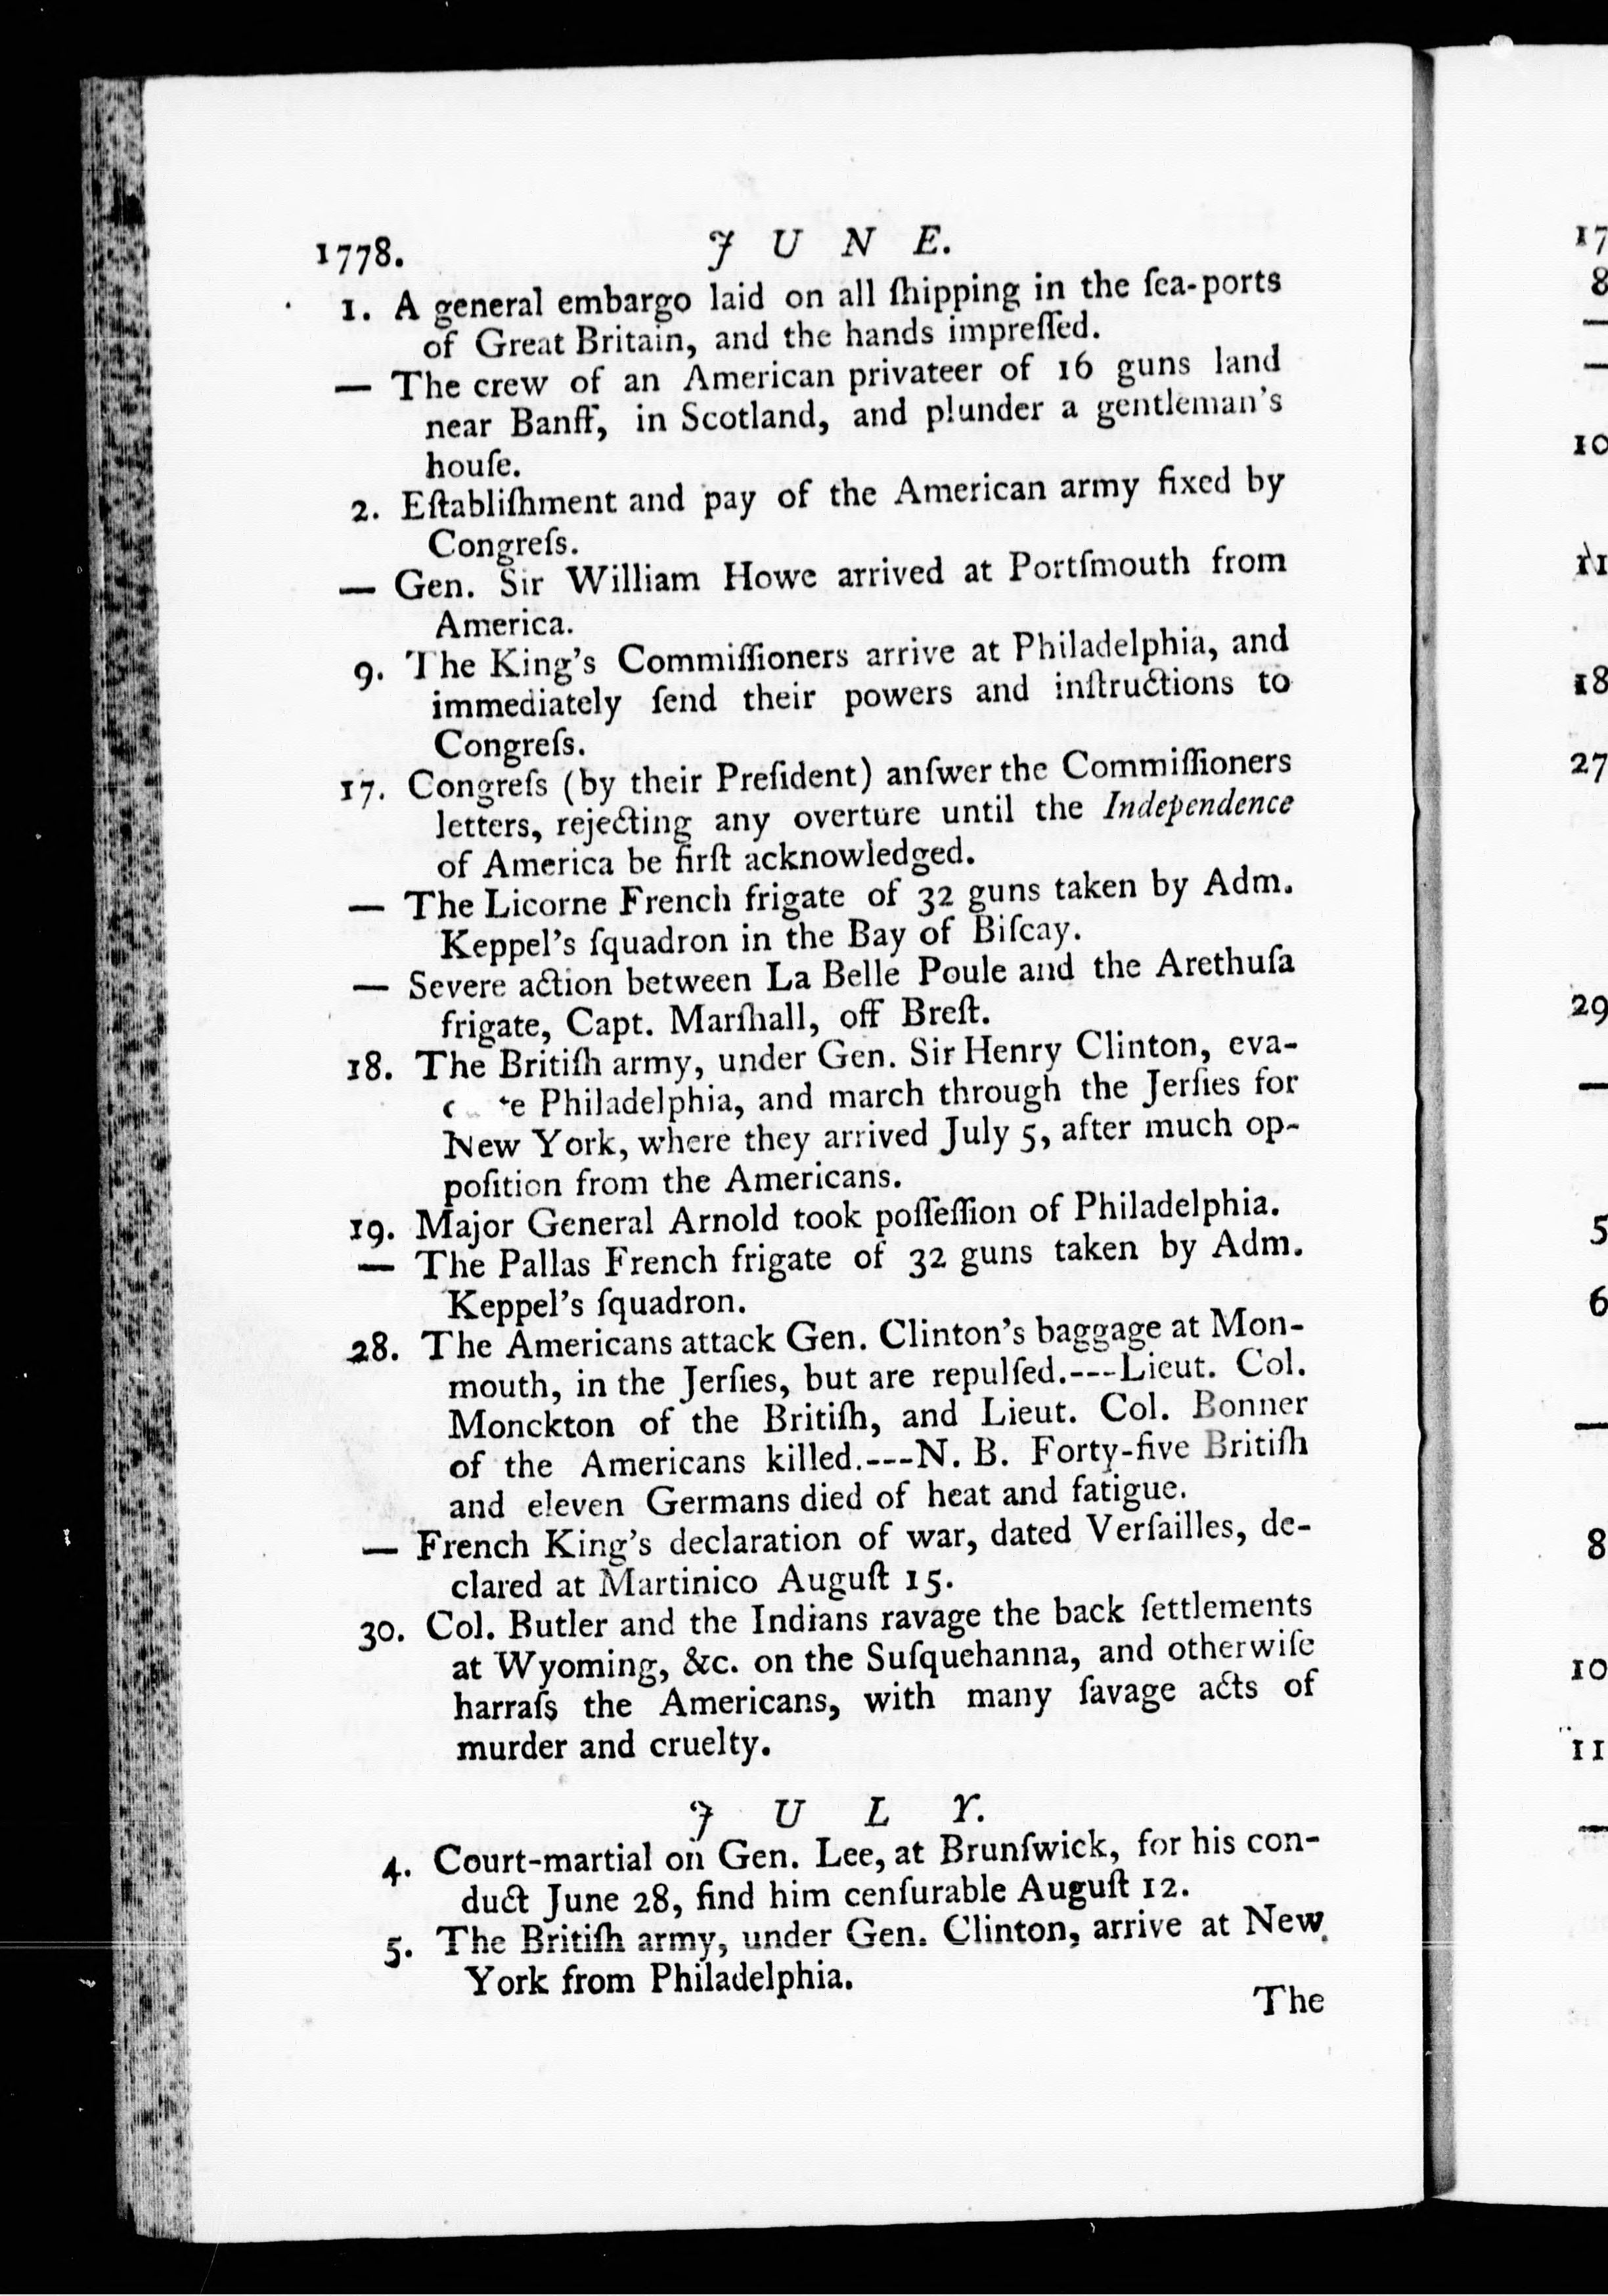 1778. JUNE.
1. A general embargo laid on all ſhipping in the ſea-ports
of Great Britain, and the hands impreſſed.
— The crew of an American privateer of 16 guns land
near Banff, in Scotland, and plunder a gentleman's
houſe.
2. Eſtabliſhment and pay of the American army fixed by
Congreſs.
— Gen. Sir William Howe arrived at Portſmouth from
America.
9. The King's Commiſſioners arrive at Philadelphia, and
immediately ſend their powers and inſtructions to
Congreſs.
17. Congreſs (by their Preſident) anſwer the Commiſſioners
letters, rejecting any overture until the Independence
of America be firſt acknowledged.
— The Licorne French frigate of 32 guns taken by Adm.
Keppel's ſquadron in the Bay of Biſcay.
— Severe action between La Belle Poule and the Arethuſa
frigate, Capt. Marſhall, off Breſt.
18. The Britiſh army, under Gen. Sir Henry Clinton, eva-
Philadelphia, and march through the Jerſies for
New York, where they arrived July 5, after much op-
poſition from the Americans.
19. Major General Arnold took poſſeſſion of Philadelphia.
— The Pallas French frigate of 32 guns taken by Adm.
Keppel's ſquadron.
28. The Americans attack Gen. Clinton's baggage at Mon-
mouth, in the Jerſies, but are repulſed.---Lieut. Col.
Monckton of the Britiſh, and Lieut. Col. Bonner
of the Americans killed.---N. B. Forty-five Britiſh
and eleven Germans died of heat and fatigue.
— French King's declaration of war, dated Verſailles, de-
clared at Martinico Auguſt 15.
30. Col. Butler and the Indians ravage the back ſettlements
at Wyoming, &c. on the Suſquehanna, and otherwiſe
harraſs the Americans, with many ſavage acts of
murder and cruelty.
JULY.
4. Court-martial on Gen. Lee, at Brunſwick, for his con-
duct June 28, find him cenſurable Auguſt 12.
5. The Britiſh army, under Gen. Clinton, arrive at New
York from Philadelphia.
The
17
8
—
—
10
11
18
27
29
—
5
6
—
8
10
11
—